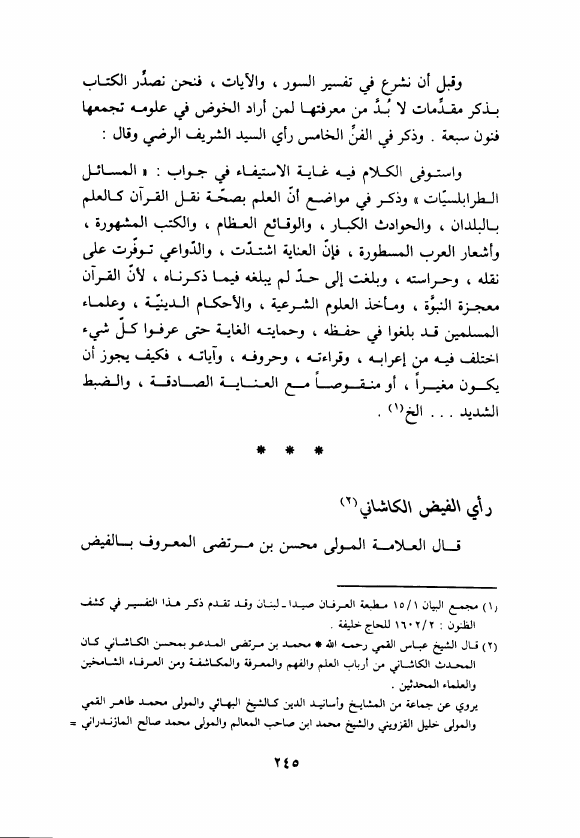 وقبل أن نشرع في تفسير السور ، والآيات ، فنحن نصدِّر الكتـاب
بـذكر مقـدِّمات لا بُـدَّ من معرفتهـا لمن أراد الخوض في علومـه تجمعها
فنون سبعة . وذكر في الفنِّ الخامس رأي السيد الشريف الرضي وقال :
واستـوفى الكـلام فيـه غـايـة الاستيفـاء في جـواب : « المسـائـل
الـطرابلسيّات » وذكـر في مواضـع أنّ العلم بصحّـة نقـل القـرآن كـالعلم
بـالبلدان ، والحوادث الكبـار ، والوقـائع العـظام ، والكتب المشهـورة ،
وأشعار العرب المسطورة ، فإنّ العناية اشتـدّت ، والدّواعي تـوفّرت على
نقله ، وحـراسته ، وبلغت إلى حـدّ لم يبلغه فيمـا ذكـرنـاه ، لأنّ القـرآن
معجـزة النبـوَّة ، ومـأخـذ العلوم الشـرعية ، والأحكـام الـدينيّـة ، وعلمـاء
المسلمين قـد بلغوا في حفـظه ، وحمايتـه الغاية حتى عرفـوا كـلّ شيء
اختلف فيـه من إعرابـه ، وقراءتـه ، وحروفـه ، وآياتـه ، فكيف يجوز أن
يكـون مغيـراً ، أو منـقـوصـاً مـع العنـايـة الصـادقـة ، والـضبط
الشديد . . . الخ(١) .
* * *
رأي الفيض الكاشاني(٢)
قـال العـلامـة المـولى محسن بن مـرتضى المعـروف بـالفيض
(١) مجمـع البيان ١٥/١ مـطبعة العـرفـان صيـدا ـ لبنـان وقـد تقـدم ذكـر هـذا التفسيـر في كشف
الظنون : ١٦٠٢/٢ للحاج خليفة .
(٢) قـال الشيخ عبـاس القمي رحمـه الله * محمـد بن مـرتضى المـدعـو بمحسن الكـاشـاني كـان
المحدث الكاشاني من أرباب العلم والفهم والمعرفة والمكاشفة ومن العرفـاء الشـامخين
والعلماء المحدثين .
يروي عن جماعة من المشايـخ وأسانيـد الدين كـالشيخ البهائي والمولى محمـد طاهـر القمي
والمولى خليل القزويني والشيخ محمد ابن صاحب المعالم والمولى محمد صالح المازنـدراني =
٢٤٥